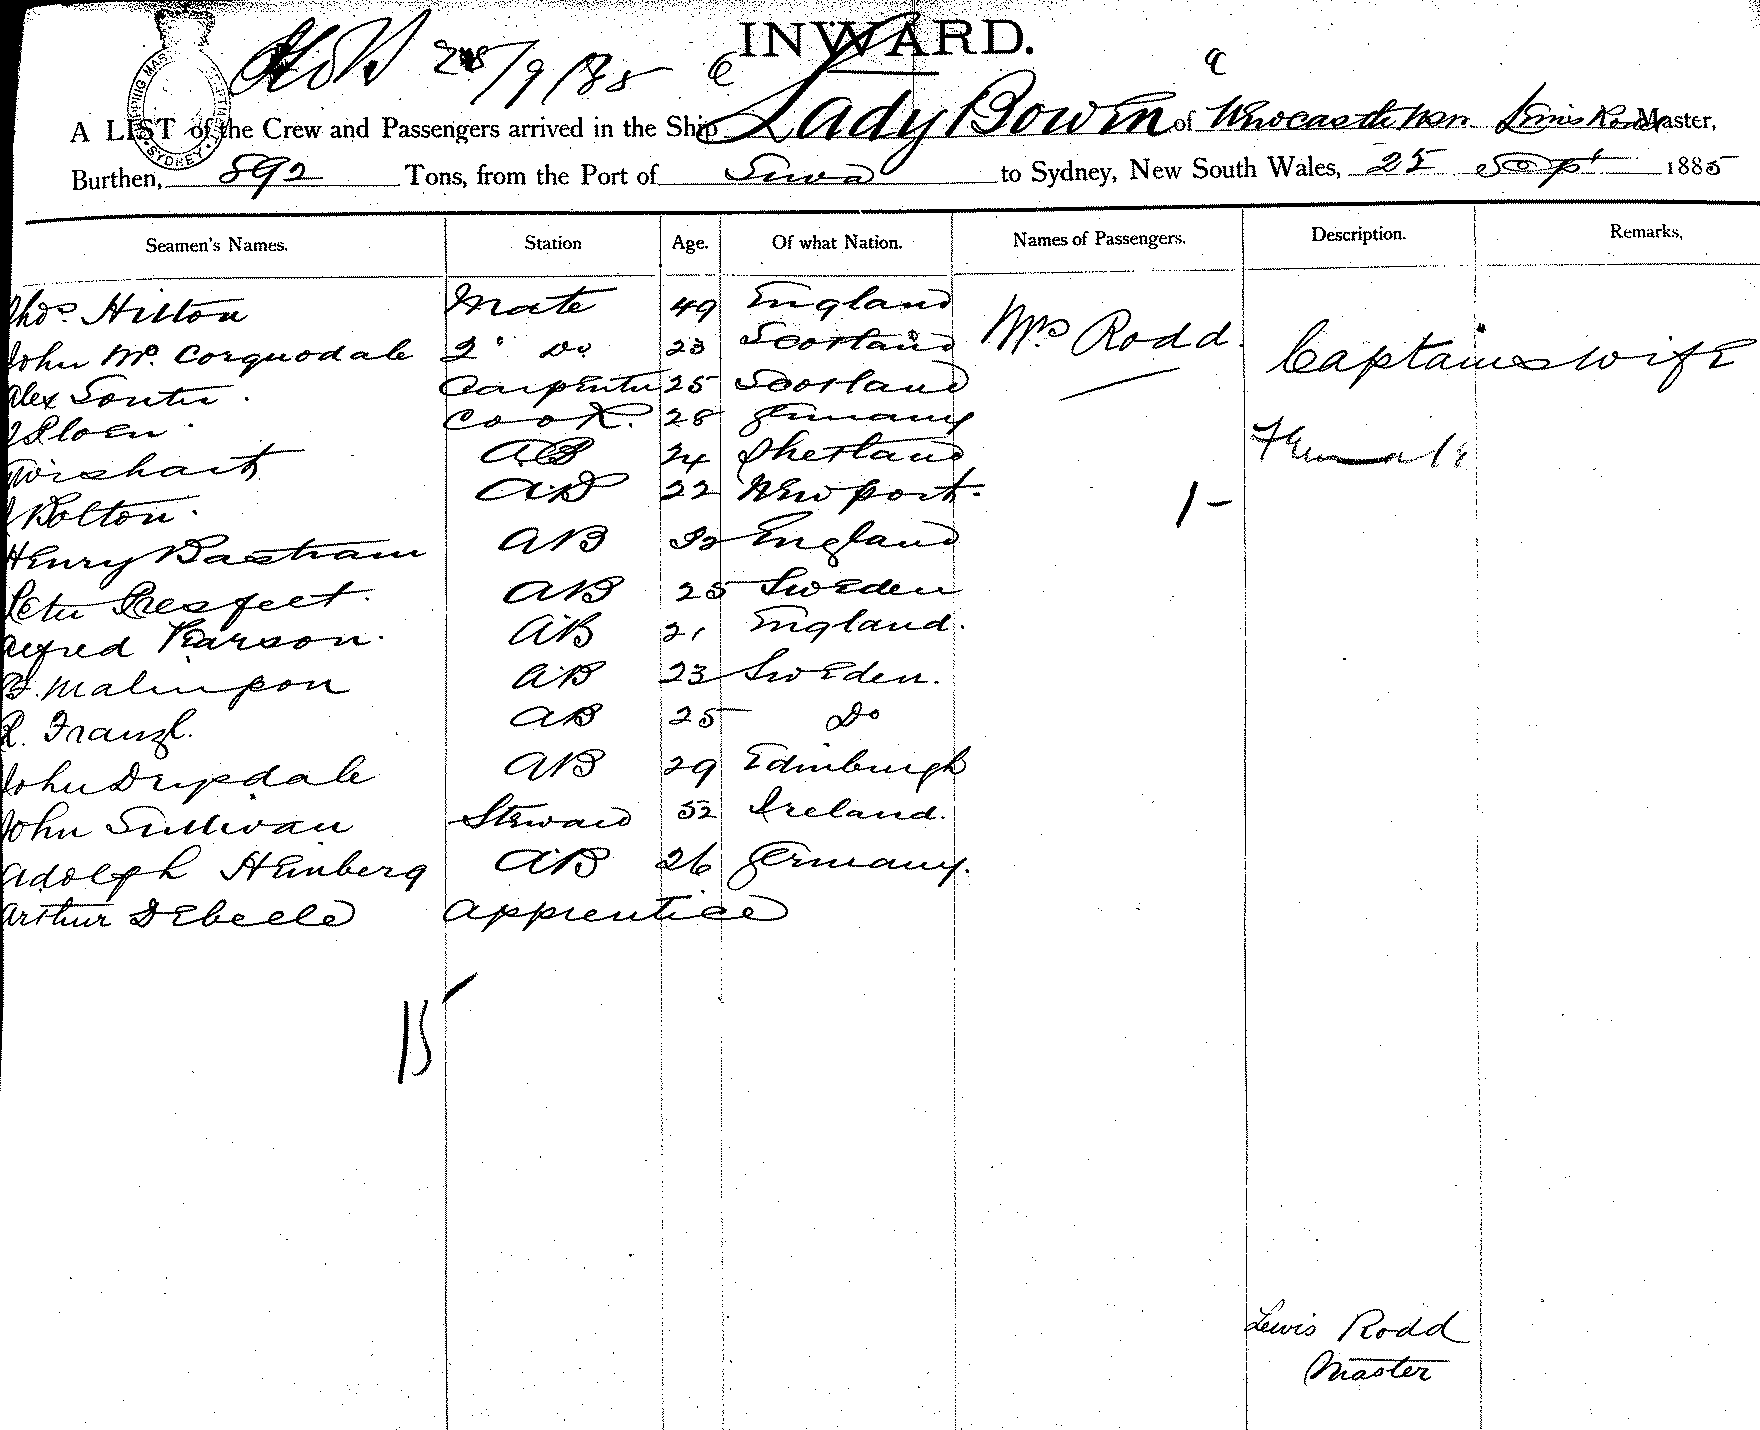 INWARD.
28/9/85
A LIST of the Crew and Passengers arrived in the Ship Lady Bowen of Newcastle Lewis Rodd Master,
Burthen, 892 Tons, from the Port of Suva to Sydney, New South Wales, 25 Sept 1885
Seamen's Names. Station Age. Of what Nation. Names of Passengers. Description. Remarks,
Thos Hilton Mate 49 England Mrs Rodd. Captains wife
John Mc. Corquodale 2d Do 23 Scotland
Alex Souter. Carpenter 25 Scotland
Cook. 28 Germany Female
Wishart AB 24 Shetland
J Bolton. AB 22 Newport. 1-
Henry Bastram AB England
Peter AB 25 Sweden
Alfred Pearson. AB 21 England.
AB 23 Sweden.
R. Franzl. AB 25 Do
John Drysdale AB 29 Edinburgh
John Sullivan Steward 52 Ireland.
Adolph Heinberg AB 26 Germany.
Arthur Apprentice
15
Lewis Rodd
Master